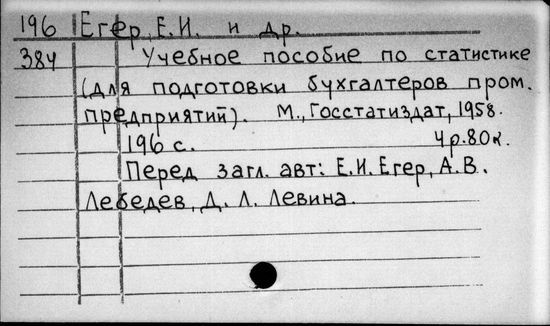 196 Егер, Е.И. и др.
384 Учебное пособие по статистике
(для подготовки бухгалтеров пром.
предприятий). М., Госстатиздат, 1958.
196 с. 4р.80к.
Перед загл. авт: Е.И. Егер, А.В.
Лебедев, Д. Л. Левина.